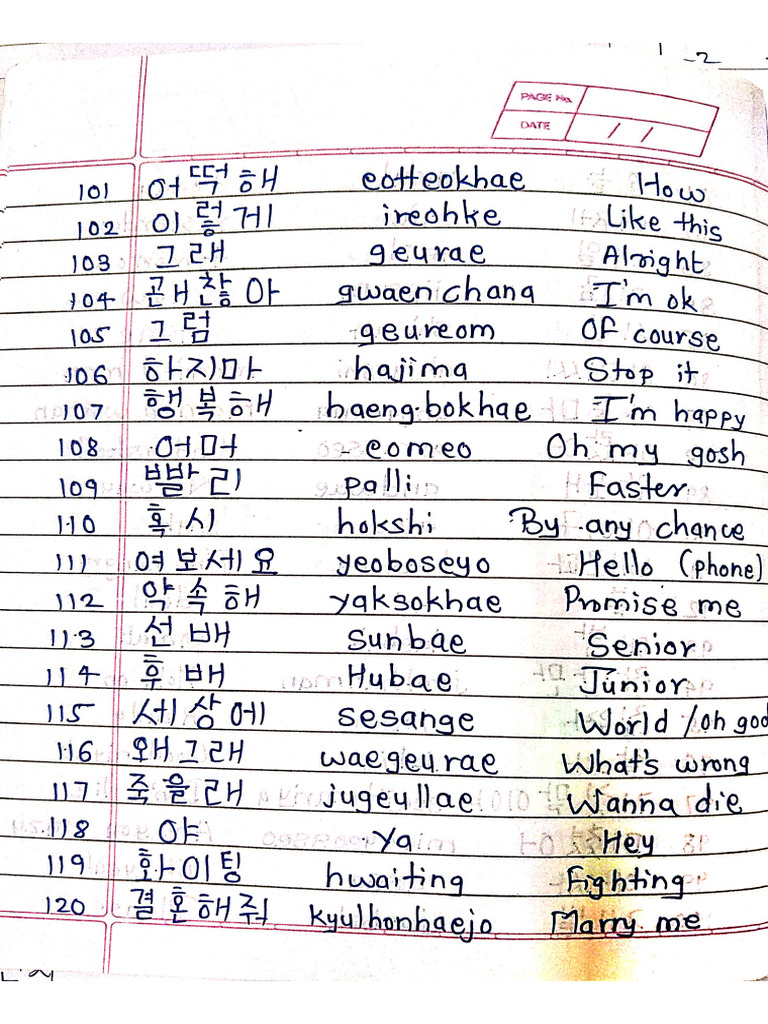 -2
PAGE No.
DATE / /
101 어떡해 eotteokhae How
102 이렇게 ireohke Like this
103 그래 geurae Alright
104 괜찮아 gwaenchana I'm ok
105 그럼 geureom Of course
106 하지마 hajima Stop it
107 행복해 haengbokhae I'm happy
108 어머 eomeo Oh my gosh
109 빨리 palli Faster
110 혹시 hokshi By any chance
111 여보세요 yeoboseyo Hello (phone)
112 약속해 yaksokhae Promise me
113 선배 sunbae Senior
114 후배 Hubae Junior
115 세상에 sesange World / oh god
116 왜그래 waegeurae What's wrong
117 죽을래 jugeullae Wanna die
118 야 Ya Hey
119 화이팅 hwaiting Fighting
120 결혼해줘 kyulhonhaejo Marry me